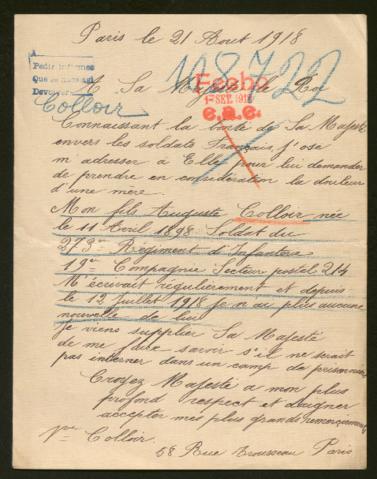 Paris le 21 Aout 1918
A
Pedir informes
Que se
Devolver
Colloir
108722
A Sa Majesté le Roi
Fecho
1º SET. 1918
c.a.c.
Connaissant la bonté de Sa Majesté
envers les soldats Français j'ose
m'adresser à Elle pour lui demander
de prendre en considération la douleur
d'une mère.
Mon fils Auguste Colloir née
le 11 Avril 1898 Soldat du
273me Régiment d'Infanterie
19me Compagnie Secteur postal 214
M'écrivait régulièrement et depuis
le 12 Juillet 1918 je n'ai plus aucune
nouvelle de lui
je viens supplier Sa Majesté
de me faire savoir s'il ne serait
pas interner dans un camp de prisonniers
Croyez Majesté a mon plus
profond respect et daigner
accepter mes plus grands remerciements
Colloir.
58 Rue Trousseau Paris